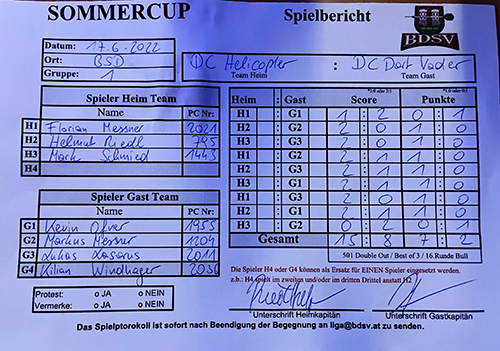 SOMMERCUP Spielbericht
BDSV
Datum: 17.6.2022
Ort: BSD
Gruppe: 1
DC Helicopter : DC Dart Vader
Team Heim Team Gast
Spieler Heim Team
Name PC Nr:
H1 Florian Messner 2021
H2 Helmut Riedl 795
H3 Mark Schmied 1443
H4
Spieler Gast Team
Name PC Nr:
G1 Kevin 1955
G2 Markus Messner 1204
G3 Lukas 2011
G4 Kilian Windhager 2036
Protest: o JA o NEIN
Vermerke: o JA o NEIN
*2:0 oder 2:1 *1:0 oder 0:1
Heim : Gast Score Punkte
H1 : G1 1 : 2 0 : 1
H2 : G2 2 : 0 1 : 0
H3 : G3 2 : 1 1 : 0
H1 : G2 2 : 1 1 : 0
H2 : G3 2 : 1 1 : 0
H3 : G1 2 : 1 1 : 0
H1 : G3 2 : 0 1 : 0
H2 : G1 2 : 0 1 : 0
H3 : G2 0 : 2 0 : 1
Gesamt 15 : 8 7 : 2
501 Double Out / Best of 3 / 16.Runde Bull
Die Spieler H4 oder G4 können als Ersatz für EINEN Spieler eingesetzt werden.
z.b.: H4 spielt im zweiten und/oder im dritten Drittel anstatt H2
Unterschrift Heimkapitän Unterschrift Gastkapitän
Das Spielprotokoll ist sofort nach Beendigung der Begegnung an liga@bdsv.at zu senden.